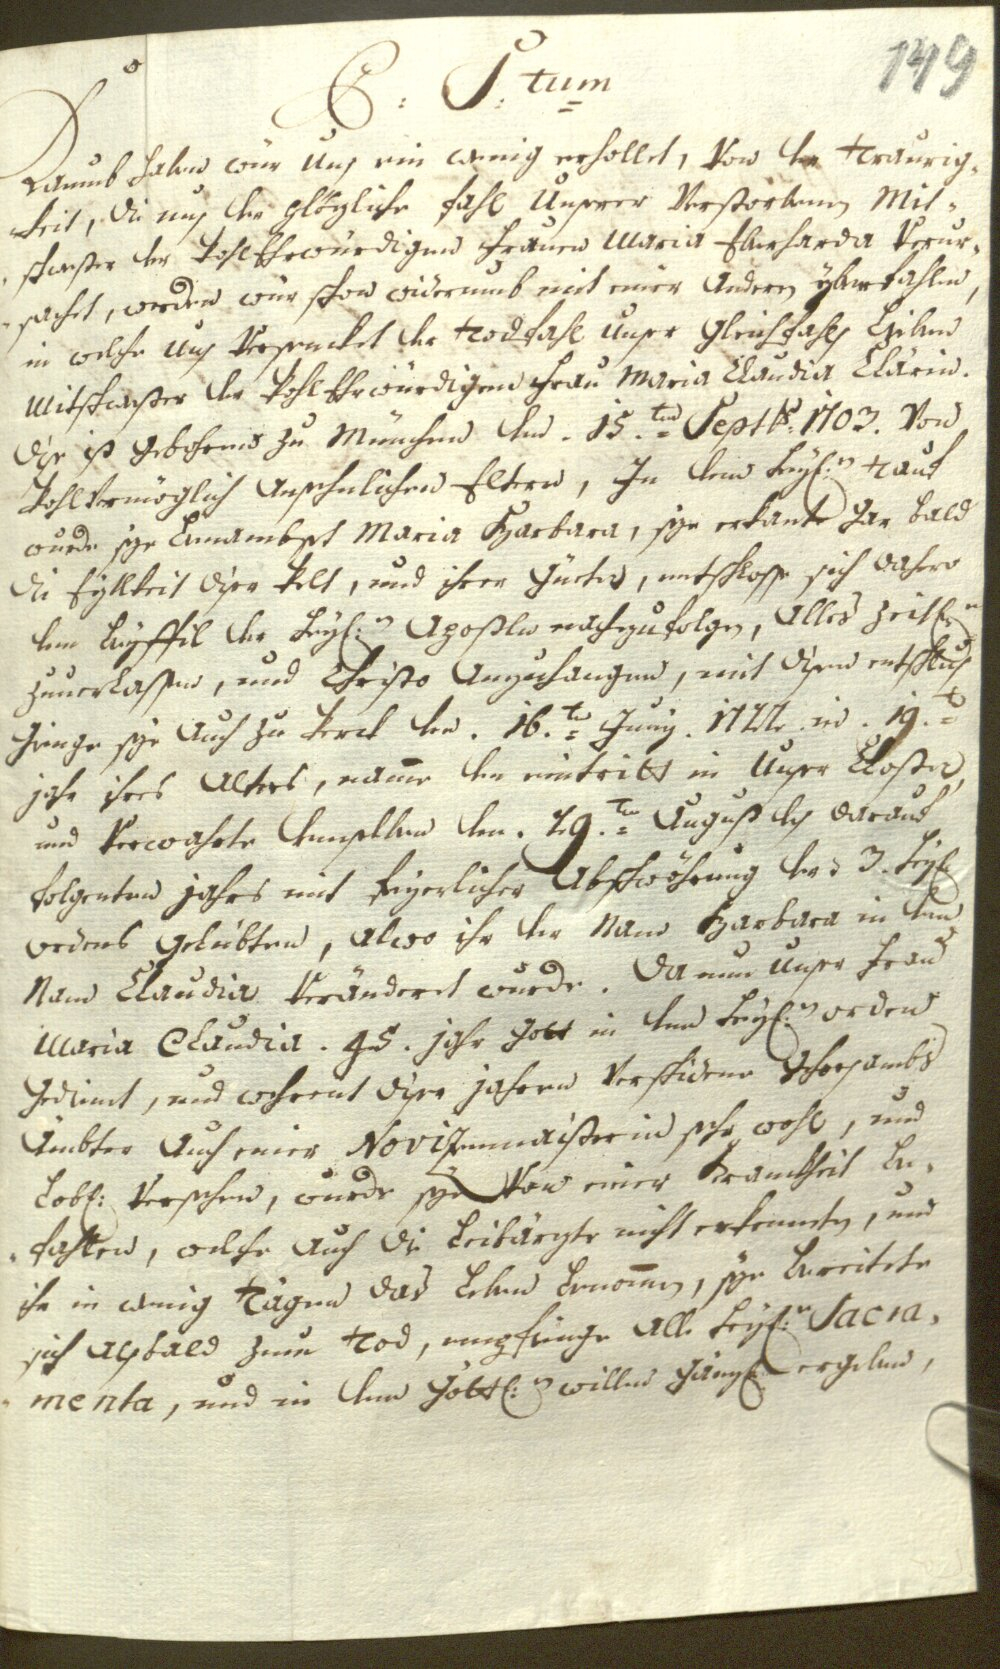 149
C: S: tum
Kaumb haben wür Uns ein wenig erhollet, Von der traurig-
keit, die uns der glägliche fahl Unserer Verstorbenen Mit-
schwester der WohlEhrwürdigen Frauen Maria Eberharda Verur-
sachet, werden wür schon widerumb mit einer anderen yberfahlen,
in welche Uns Versencket der todtfahl Unser gleichfahls lieben
Mitschwester der WohlEhrwürdigen Frau Maria Claudia Clarin.
Dise ist gebohrend zu München den . 15.ten Septbr: 1703. Von
Wohl Vermöglich ansehnlichen Eltern, In dem heyl:n tauf
wurde sye benambset Maria Barbara, sye erkante gar bald
die Eytlkeit diser Welt, und ihrer gütter, entschlosse sich dahero
dem beyspil der heyl:n Aposteln nachzufolgen, alles zeitl:e
zuuerlassen, und Christo anzuhangen, mit disem entschlus
gienge sye auch zu werck den . 16.ten Juny . 1722 . im . 19.ten
jahr ihres Alters, namme den eintritt in Unser Closter,
und Verwahrte denselben den . 29.ten August des darauf
folgenten jahrs mit feyerlicher Abschwöhrung der 3. heyl:
ordens gelübten, alwo ihr der Nam Barbara in den
Nam Claudia Veränderet wurde. Da nun Unser Frau
Maria Claudia . 45 . jahr Gott in dem heyl:n orden
gedient, und wehrent diser jahren Verschidene gehorsambs
Ämbter auch einer Novizenmaisterin sehr wohl, und
lobl: Versehen, wurde sye Von einer Kranckheit be-
fahlen, welche auch die leibärzte nicht erkennten, und
ihr in wenig tägen das leben benommen, sye bereitete
sich alsbald zum tod, empfienge alle heyl:e Sacra-
menta, und in den Göttl:n willen gänzl: ergeben,